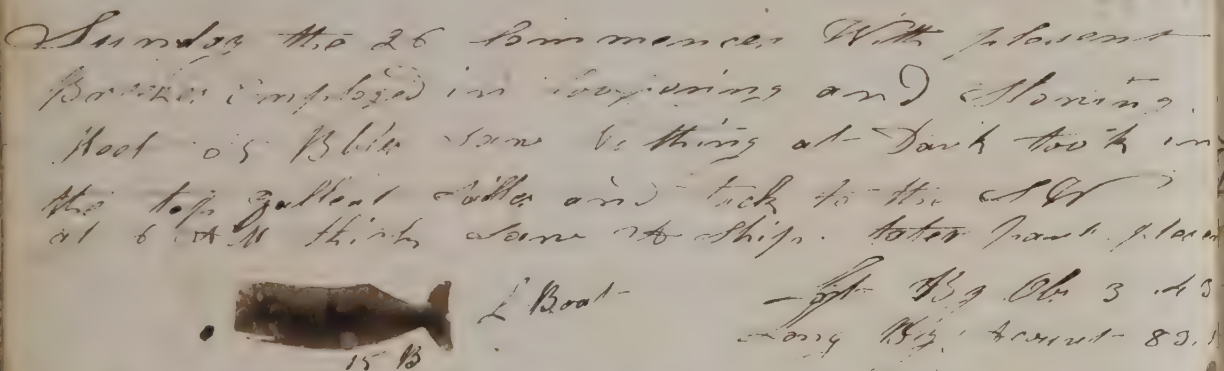 Sunday the 26 Commences With plesent
Breeses imployed in and Stoning
Bbls Saw Nothing at Dark took in
the top gallent Sailes and tack to the SW
at 6 AM think Saw A Ship. later part plesen
L Boat
15 B
By Ob 3 43
Long By Acount 83